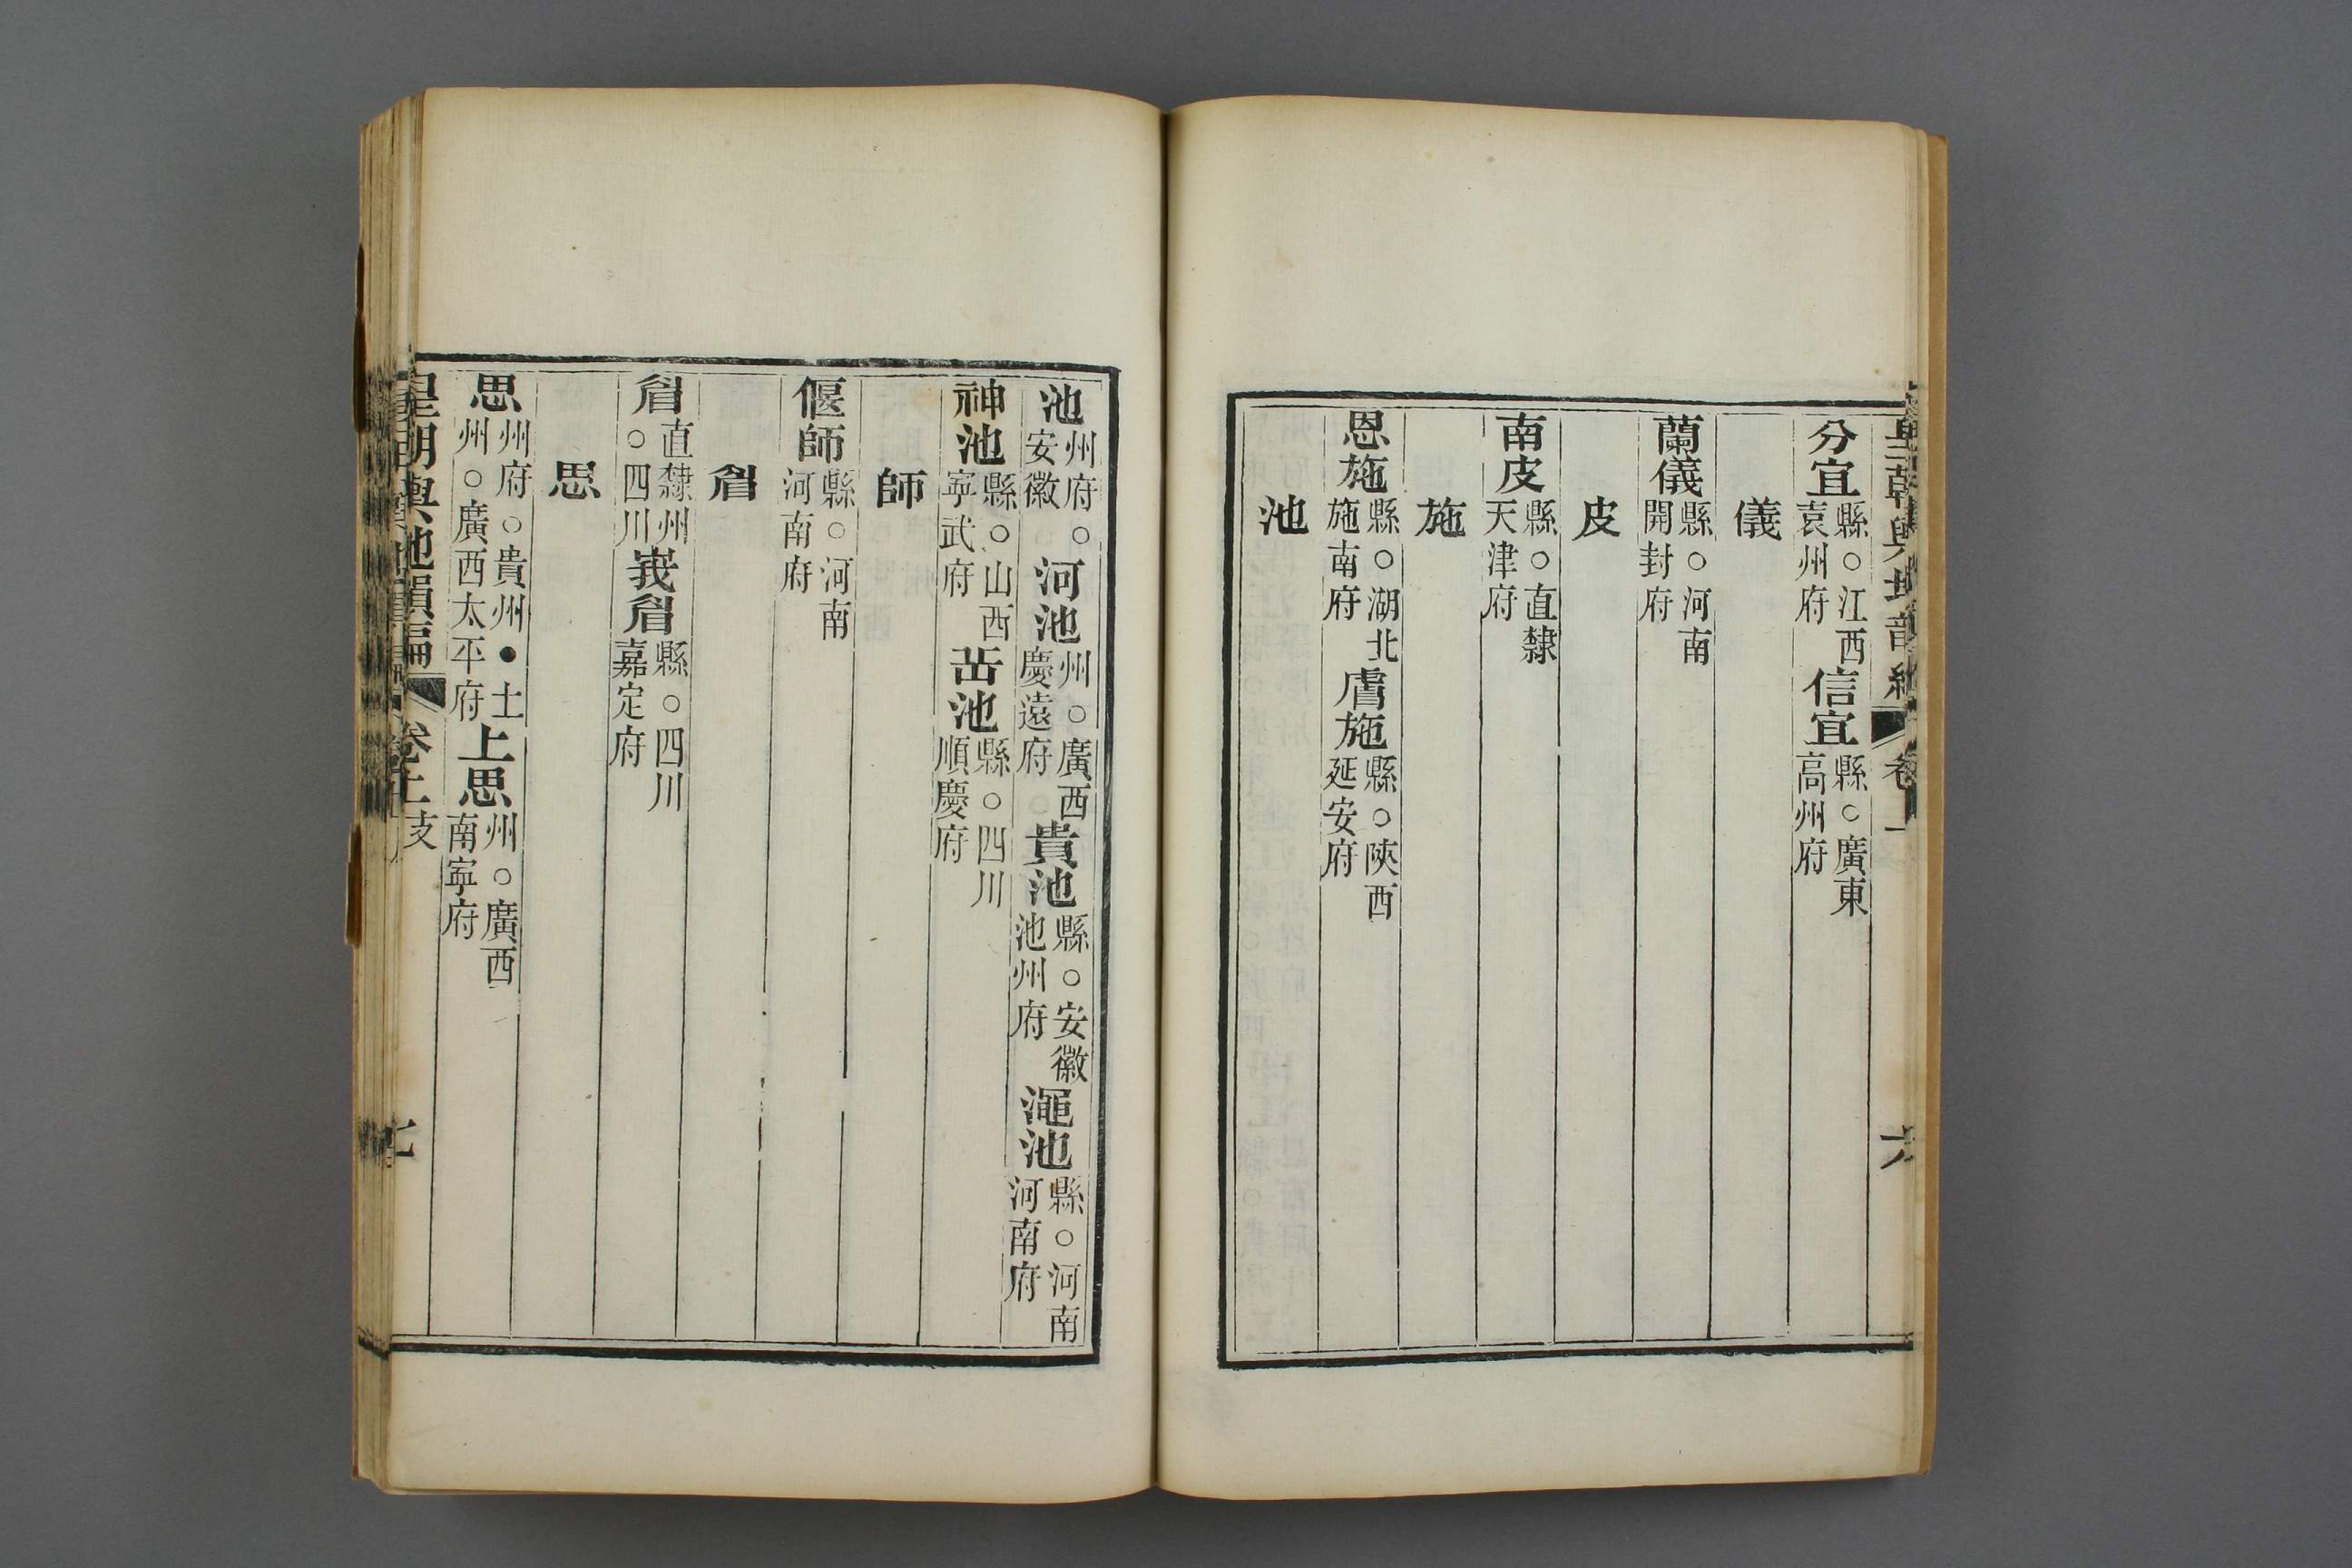 分宜縣○江西袁州府信宜縣○廣東高州府
儀
蘭儀縣○河南開封府
皮
南皮縣○直隸天津府
施
恩施縣○湖北施南府膚施縣○陝西延安府
池
池州府○安徽河池州○廣西慶遠府貴池縣○安徽池州府澠池縣○河南河南府
神池縣○山西寧武府岳池縣○四川順慶府
師
偃師縣○河南河南府
眉
眉直隸州○四川峩眉縣○四川嘉定府
思
思州府○貴州●土州○廣西太平府上思州○廣西南寧府
皇朝輿地韻編 卷上 支 七